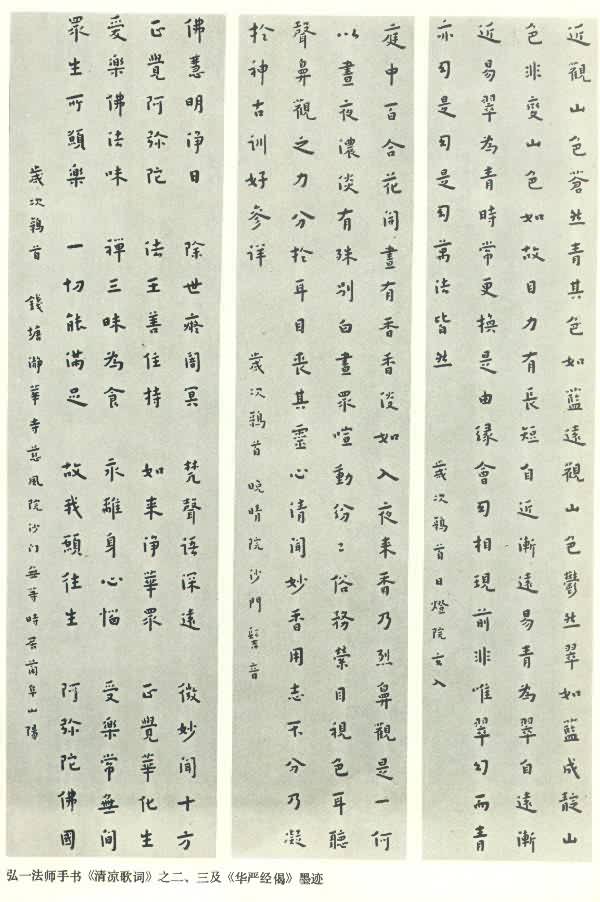 近觀山色蒼然青其色如藍遠觀山色鬱然翠如藍成靛山
色非變山色如故目力有長短自近漸遠易青為翠自遠漸
近易翠為青時常更換是由緣會幻相現前非唯翠幻而青
亦幻是幻是幻萬法皆然
歲次鶉首日燈院玄入
庭中百合花開晝有香香淡如入夜來香乃烈鼻觀是一何
以晝夜濃淡有殊別白晝眾喧動紛〻俗務縈目視色耳聽
聲鼻觀之力分於耳目喪其靈心清聞妙香用志不分乃凝
於神古訓好參詳
歲次鶉首晚晴院沙門髻音
佛慧明淨日 除世癡闇冥 梵聲語深遠 微妙聞十方
正覺阿弥陀 法王善住持 如來淨華眾 正覺華化生
愛樂佛法味 禪三昧為食 永離身心惱 受樂常無間
眾生所願樂 一切能滿足 故我願往生 阿弥陀佛國
歲次鶉首 錢塘 華寺慈風院沙门無等時居 山陽
弘一法师手书《清凉歌词》之二、三及《华严经偈》墨迹